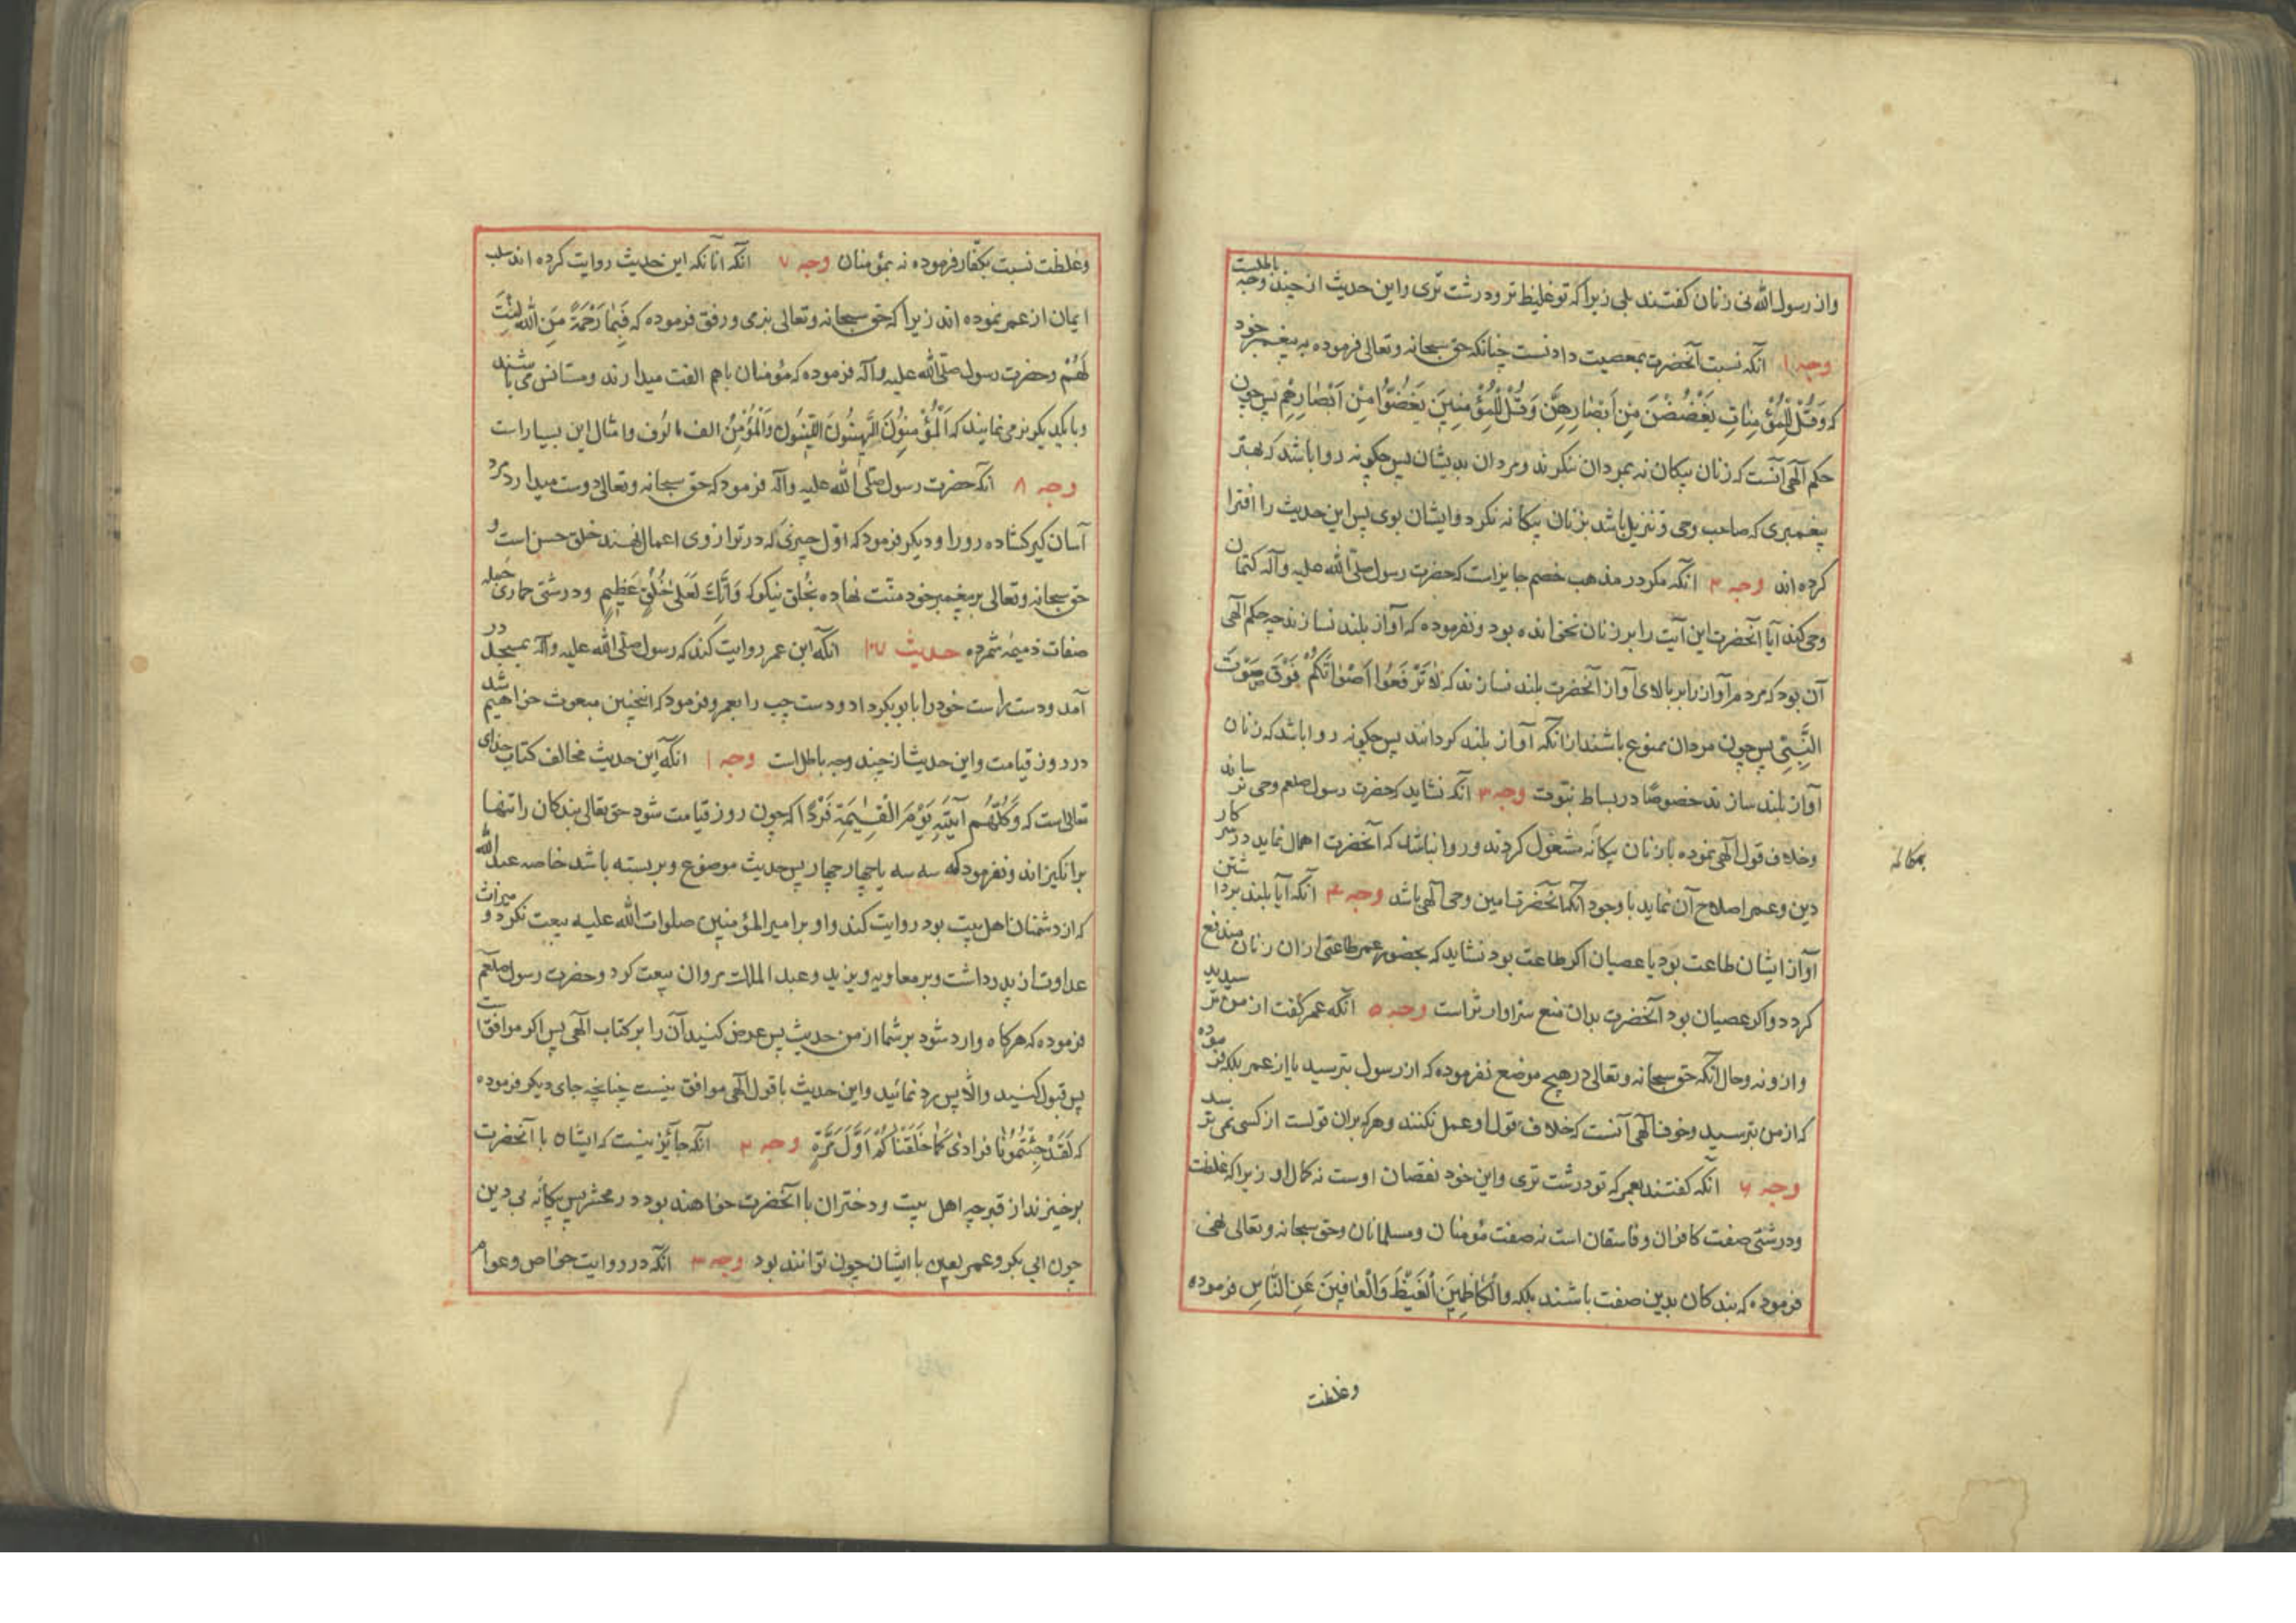 واز رسول الله نی زنان کفتند بلی زیرا که تو غلیظ تر ودرشت تری واین حدیث از چند وجه باطلست
وجه ۱ آنکه نسبت آنحضرت بمعصیت دادنست چنانکه حق سبحانه وتعالی فرموده به پیغمبر خود
که وَقُلْ لِلْمُؤْمِناتِ یَغْضُضْنَ مِنْ اَبْصارِهِنَّ وَقُلْ لِلْمُؤْمِنِینَ یَغُضُّوا مِنْ اَبْصارِهِمْ پس چون
حکم الهی آنست که زنان بیکانه بمردان ننکرند ومردان بدیشان پس چکونه روا باشد که بهتر
پیغمبری که صاحب وحی وتنزیل باشد بزنان بیکانه نکرد وایشان بوی پس این حدیث را افترا
کرده اند وجه ۲ آنکه مکر در مذهب خصم جایز است که حضرت رسول صلی الله علیه وآله کتمان
وحی کند آیا آنحضرت این آیت را بر زنان نخوانده بود ونفرموده که آواز بلند نسازند چه حکم الهی
آن بود که مردم آواز را بر بالای آواز آنحضرت بلند نسازند که لاٰ تَرْفَعُوا اَصْوٰاتَکُمْ فَوْقَ صَوْتَ
النَّبِیِّ پس چون مردان ممنوع باشند از آنکه آواز بلند کردانند پس چکونه روا باشد که زنان
آواز بلند سازند خصوصًا در بساط نبوت وجه ۳ آنکه نشاید که حضرت رسول صلعم وحی نرساند
وخلاف قول الهی نموده بازنان بیکانه مشغول کردند وروا نباشد که آنحضرت اهمال نماید در سر کار
بمکالمه
دین وعمر اصلاح آن نماید با وجود آنکه آنحضرت امین وحی الهی باشد وجه ۴ آنکه آیا بلند برداشتن
آواز ایشان طاعت بود یا عصیان اکر طاعت بود نشاید که بحضور عمر طاعتی از ان زنان مندفع
کردد واکر عصیان بود آنحضرت بدان منع سزاوارتر است وجه ۵ آنکه عمر کفت از من ترسیدید
وازو نه وحال آنکه حق سبحانه وتعالی در هیچ موضع نفرموده که از رسول بترسید یا از عمر بلکه فرموده
که از من بترسید وخوف الهی آنست که خلاف قول او عمل نکنند وهرکه بران قولست از کسی نمی ترسد
وجه ۶ آنکه کفتند بعمر که تو درشت تری واین خود نقصان اوست نه کمال او زیرا که غلظت
ودرشتی صفت کافران وفاسقان است نه صفت مؤمنان ومسلمانان وحق سبحانه وتعالی نهی
فرموده که بندکان بدین صفت باشند بلکه وَالْکٰاظِمِینَ الْغَیْظَ وَالْعٰافِینَ عَنِ النّٰاسِ فرموده
وغلظت
وغلظت نسبت بکفّار فرموده نه بمؤمنان وجه ۷ آنکه آنانکه این حدیث روایت کرده اند سلب
ایمان از عمر نموده اند زیرا که حق سبحانه وتعالی بنرمی ورفق فرموده که فَبِمٰا رَحْمَةٍ مِنَ اللهِ لِنْتَ
لَهُمْ وحضرت رسول صلی الله علیه وآله فرموده که مؤمنان باهم الفت میدارند ومستانس می باشند
وبا یکدیکر نرمی نمایند که اَلْمُؤْمِنُونَ الهَیِّنُونَ اللَّیِّنُونَ وَالْمُؤْمِنُ الف مالوف وامثال این بسیار است
وجه ۸ آنکه حضرت رسول صلی الله علیه وآله فرمود که حق سبحانه وتعالی دوست میدارد مرد
آسان کیر کشاده رو را ودیکر فرمود که اوّل چیزی که در ترازوی اعمال نهند خلق حسن است و
حق سبحانه وتعالی بر پیغمبر خود منّت نهاده بخُلق نیکو که وَاِنَّکَ لَعَلیٰ خُلُقٍ عَظِیمٍ ودرشتی حماری جمله
صفات ذمیمهٔ شمرده حدیث ۱۰۷ آنکه ابن عمر روایت کند که رسول صلی الله علیه وآله بمسجد در
آمد ودست راست خود را بابوبکر داد ودست چپ را بعمر وفرمود که اینچنین مبعوث خواهیم شد
در روز قیامت واین حدیث از چند وجه باطل است وجه ۱ آنکه این حدیث مخالف کتاب خدای
تعالی است که وَکُلُّهُم آتِیَهِ یَوْمَ الْقِیٰمَةِ فَرْدًا که چون روز قیامت شود حق تعالی بندکان را تنها
برانکیزاند ونفرمود که سه سه یا چهار چهار پس حدیث موضوع وبربسته باشد خاصه عبد الله
که از دشمنان اهل بیت بود روایت کند واو بر امیر المؤمنین صلوات الله علیه بیعت نکرد و میراث
عداوت از پدر داشت وبر معاویه ویزید وعبد الملک مروان بیعت کرد وحضرت رسول صلعم
فرموده که هرکاه وارد شود بر شما از من حدیث پس عرض کنید آن را بر کتاب الهی پس اکر موافق است
پس قبول کنید والّا پس رد نمائید واین حدیث با قول الهی موافق نیست چنانچه جای دیکر فرموده
که لَقَدْ جِئْتُمُونٰا فرادیٰ کَمٰا خَلَقْنٰاکُمْ اَوَّلَ مَرَّةٍ وجه ۲ آنکه جائز نیست که ایشان با آنحضرت
برخیزند از قبر چه اهل بیت ودختران با آنحضرت خواهند بود در محشر پس بیکانهٔ بی دین
چون ابی بکر وعمر لعین با ایشان چون توانند بود وجه ۳ آنکه در روایت خواص وعوام